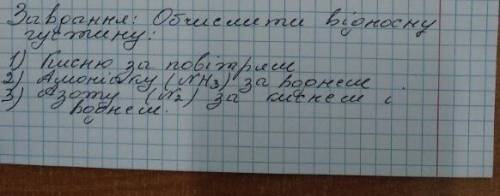 Завдання: Обчислити відносну
густину:
1) Кисню за повітрям
2) Амоніаку (NH3) за воднем.
3) Азоту (N2) за киснем і
воднем.